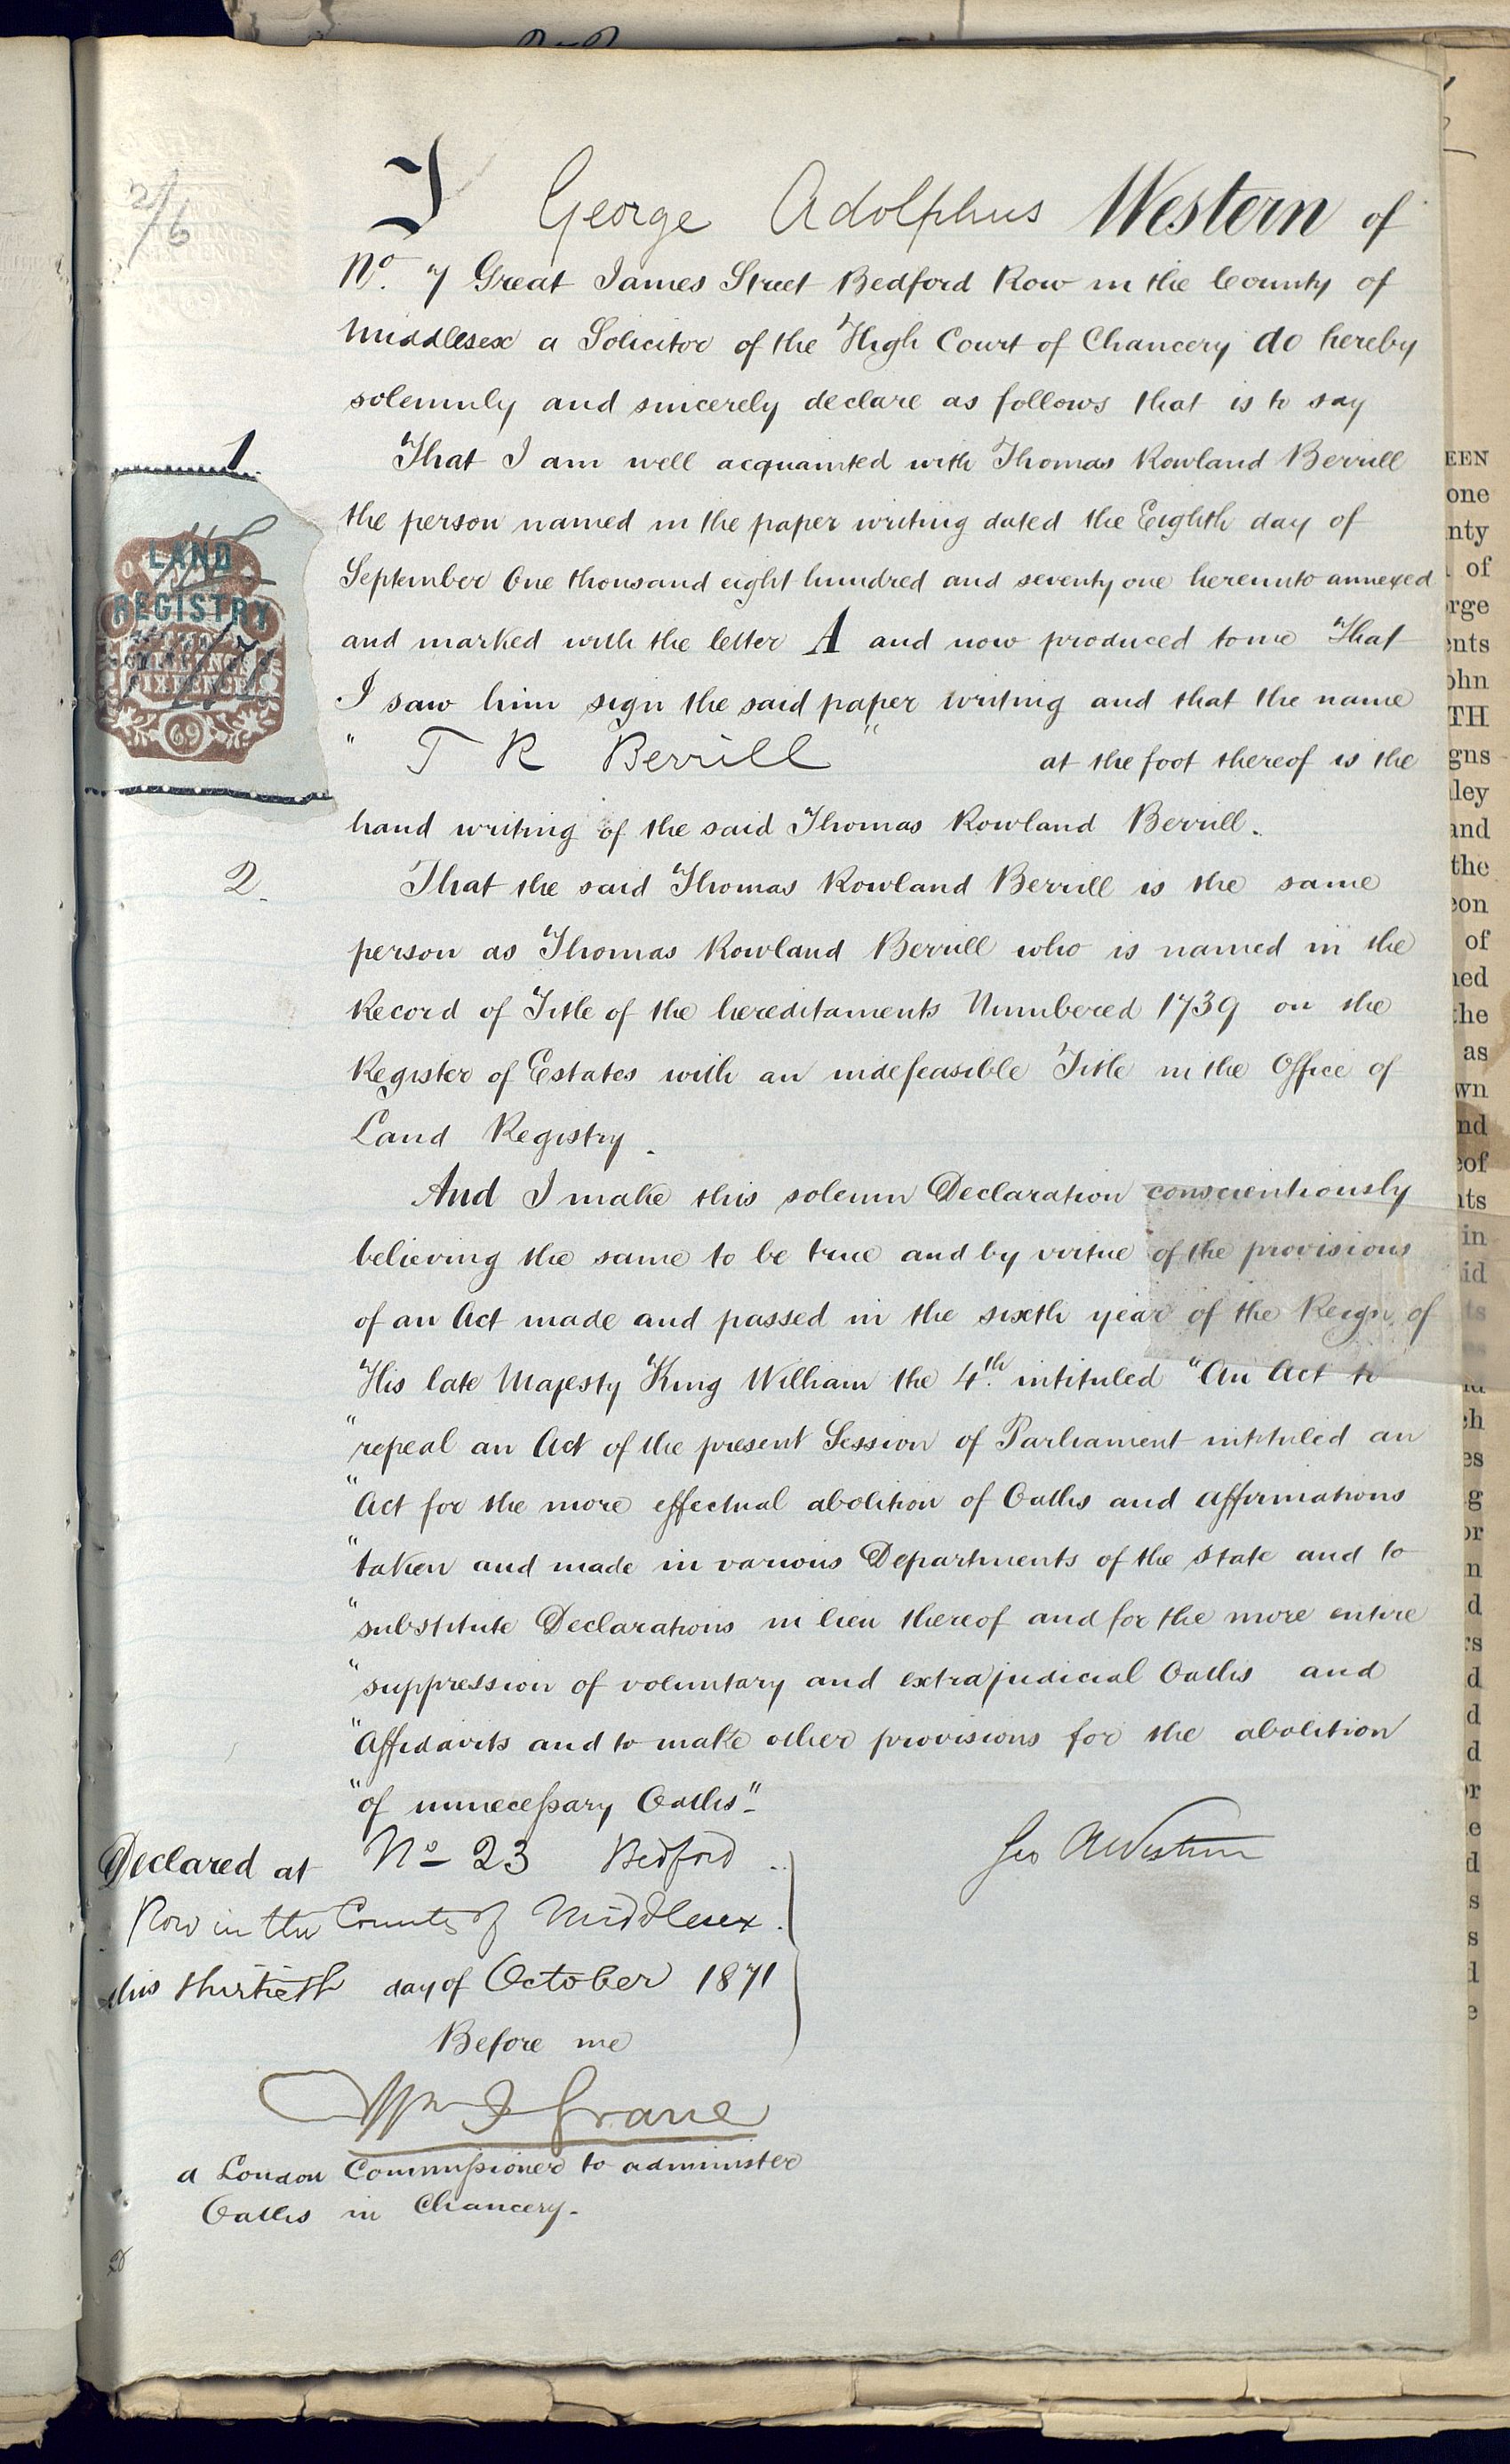 2/6
I George Adolphus Western of
No. 7 Great James Street Bedford Row in the County of
Middlesex a Solicitor of the High Court of Chancery do hereby
solemnly and sincerely declare as follows that is to say
1 That I am well acquainted with Thomas Rowland Berrill
the person named in the paper writing dated the Eighth day of
September One thousand eight hundred and seventy one hereunto annexed
and marked with the letter A and now produced to me That
I saw him sign the said paper writing and that the name
" T R Berrill " at the foot thereof is the
hand writing of the said Thomas Rowland Berrill.
LAND
REGISTRY
SIXPENCE
69
2 That the said Thomas Rowland Berrill is the same
person as Thomas Rowland Berrill who is named in the
Record of Title of the hereditaments Numbered 1739 on the
Register of Estates with an indefeasible Title in the Office of
Land Registry.
And I make this solemn Declaration conscientiously
believing the same to be true and by virtue of the provisions
of an Act made and passed in the sixth year of the Reign of
His late Majesty King William the 4th. intituled "An Act to
"repeal an Act of the present Session of Parliament intituled an
"Act for the more effectual abolition of Oaths and Affirmations
"taken and made in various Departments of the State and to
"substitute Declarations in lieu thereof and for the more entire
"suppression of voluntary and extrajudicial Oaths and
"Affidavits and to make other provisions for the abolition
"of unnecessary Oaths"
Geo A Western
Declared at No 23 Bedford
Row in the County of Middlesex
this thirtieth day of October 1871
Before me
Wm J Grane
a London Commissioner to administer
Oaths in Chancery.
EEN
one
nty
of
rge
ents
ohn
TH
gns
ley
and
the
eon
of
ned
the
as
wn
nd
eof
nts
in
id
ts